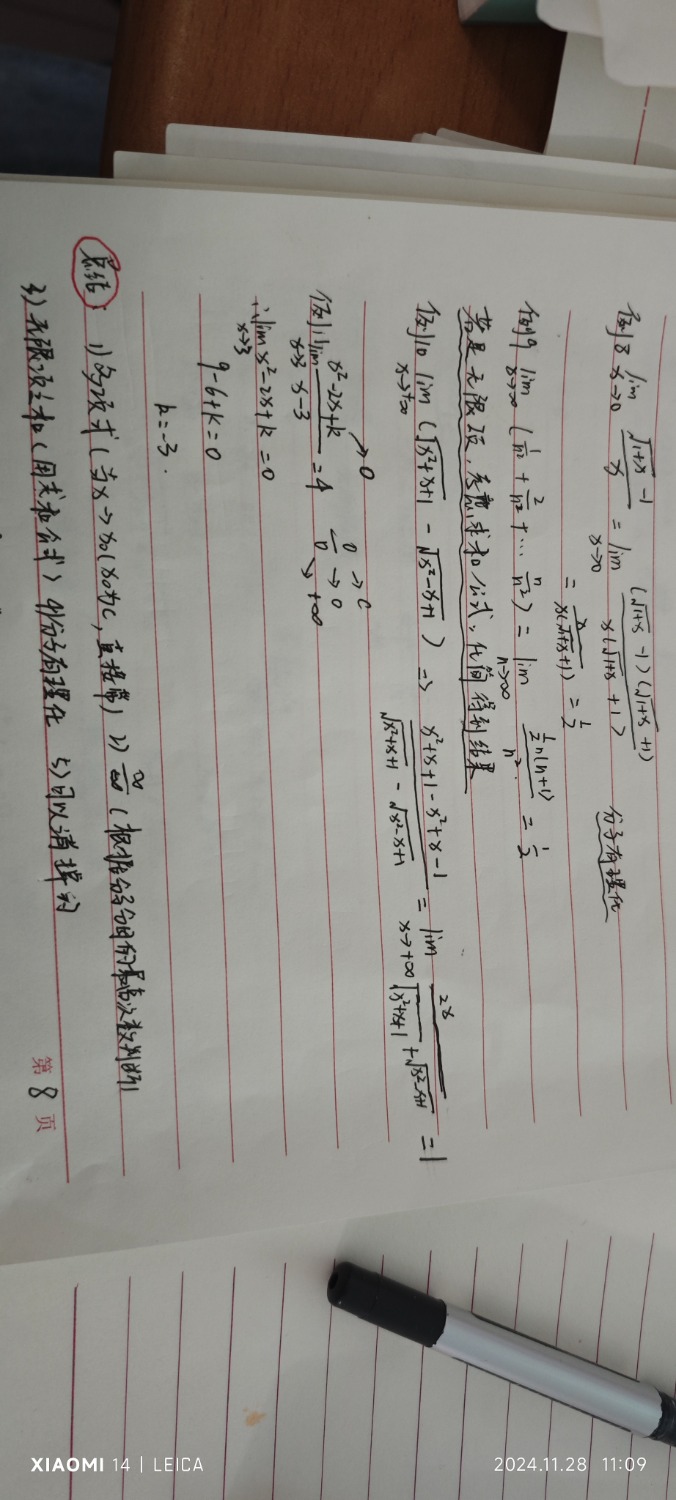 例8 lim x→0 (√1+x -1)/x = lim x→0 (√1+x -1)(√1+x +1)/x(√1+x +1) 分子有理化
= x/x(√1+x +1) = 1/2
例9 lim x→∞ (1/n² + 2/n² + … n/n²) = lim n→∞ ½n(n+1)/n² = 1/2
若是无限项,考虑求和公式,化简得到结果
例10 lim x→+∞ (√x²+x+1 - √x²-x+1) => x²+x+1-x²+x-1/√x²+x+1 - √x²-x+1 = lim x→+∞ 2x/√x²+x+1 + √x²-x+1 = 1
例11 lim x→3 x²-2x+k/x-3 = 4 →0 0/0 →C →0 →+∞
∴ lim x→3 x²-2x+k = 0
9-6+k=0
k=-3.
总结: 1)多项式(当x→x₀(x₀为C,直接带) 2) ∞/∞ (根据分子分母的最高次数判断)
3)无限项之和(用求和公式) 4)分子有理化 5)可以消掉的
第 8 页
XIAOMI 14 | LEICA
2024.11.28 11:09